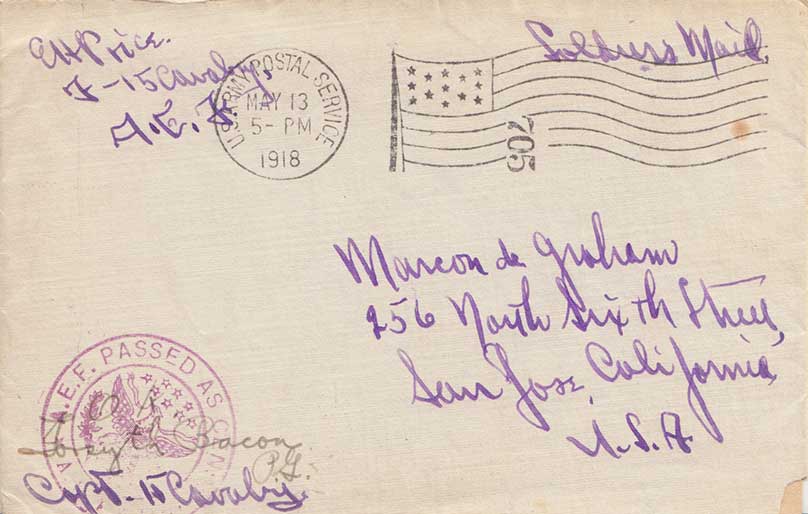 EHPrice.
F-15Cavalry,
A.E.F.
U.S. ARMY POSTAL SERVICE
MAY 13
5- PM
1918
705
Soldiers Mail,
Marcon de Graham
256 North Sixth Street,
San Jose, California,
U.S.A
A.E.F. PASSED AS CEN
O.K.
Forsyth Bacon
Capt. 15 Cavalry.